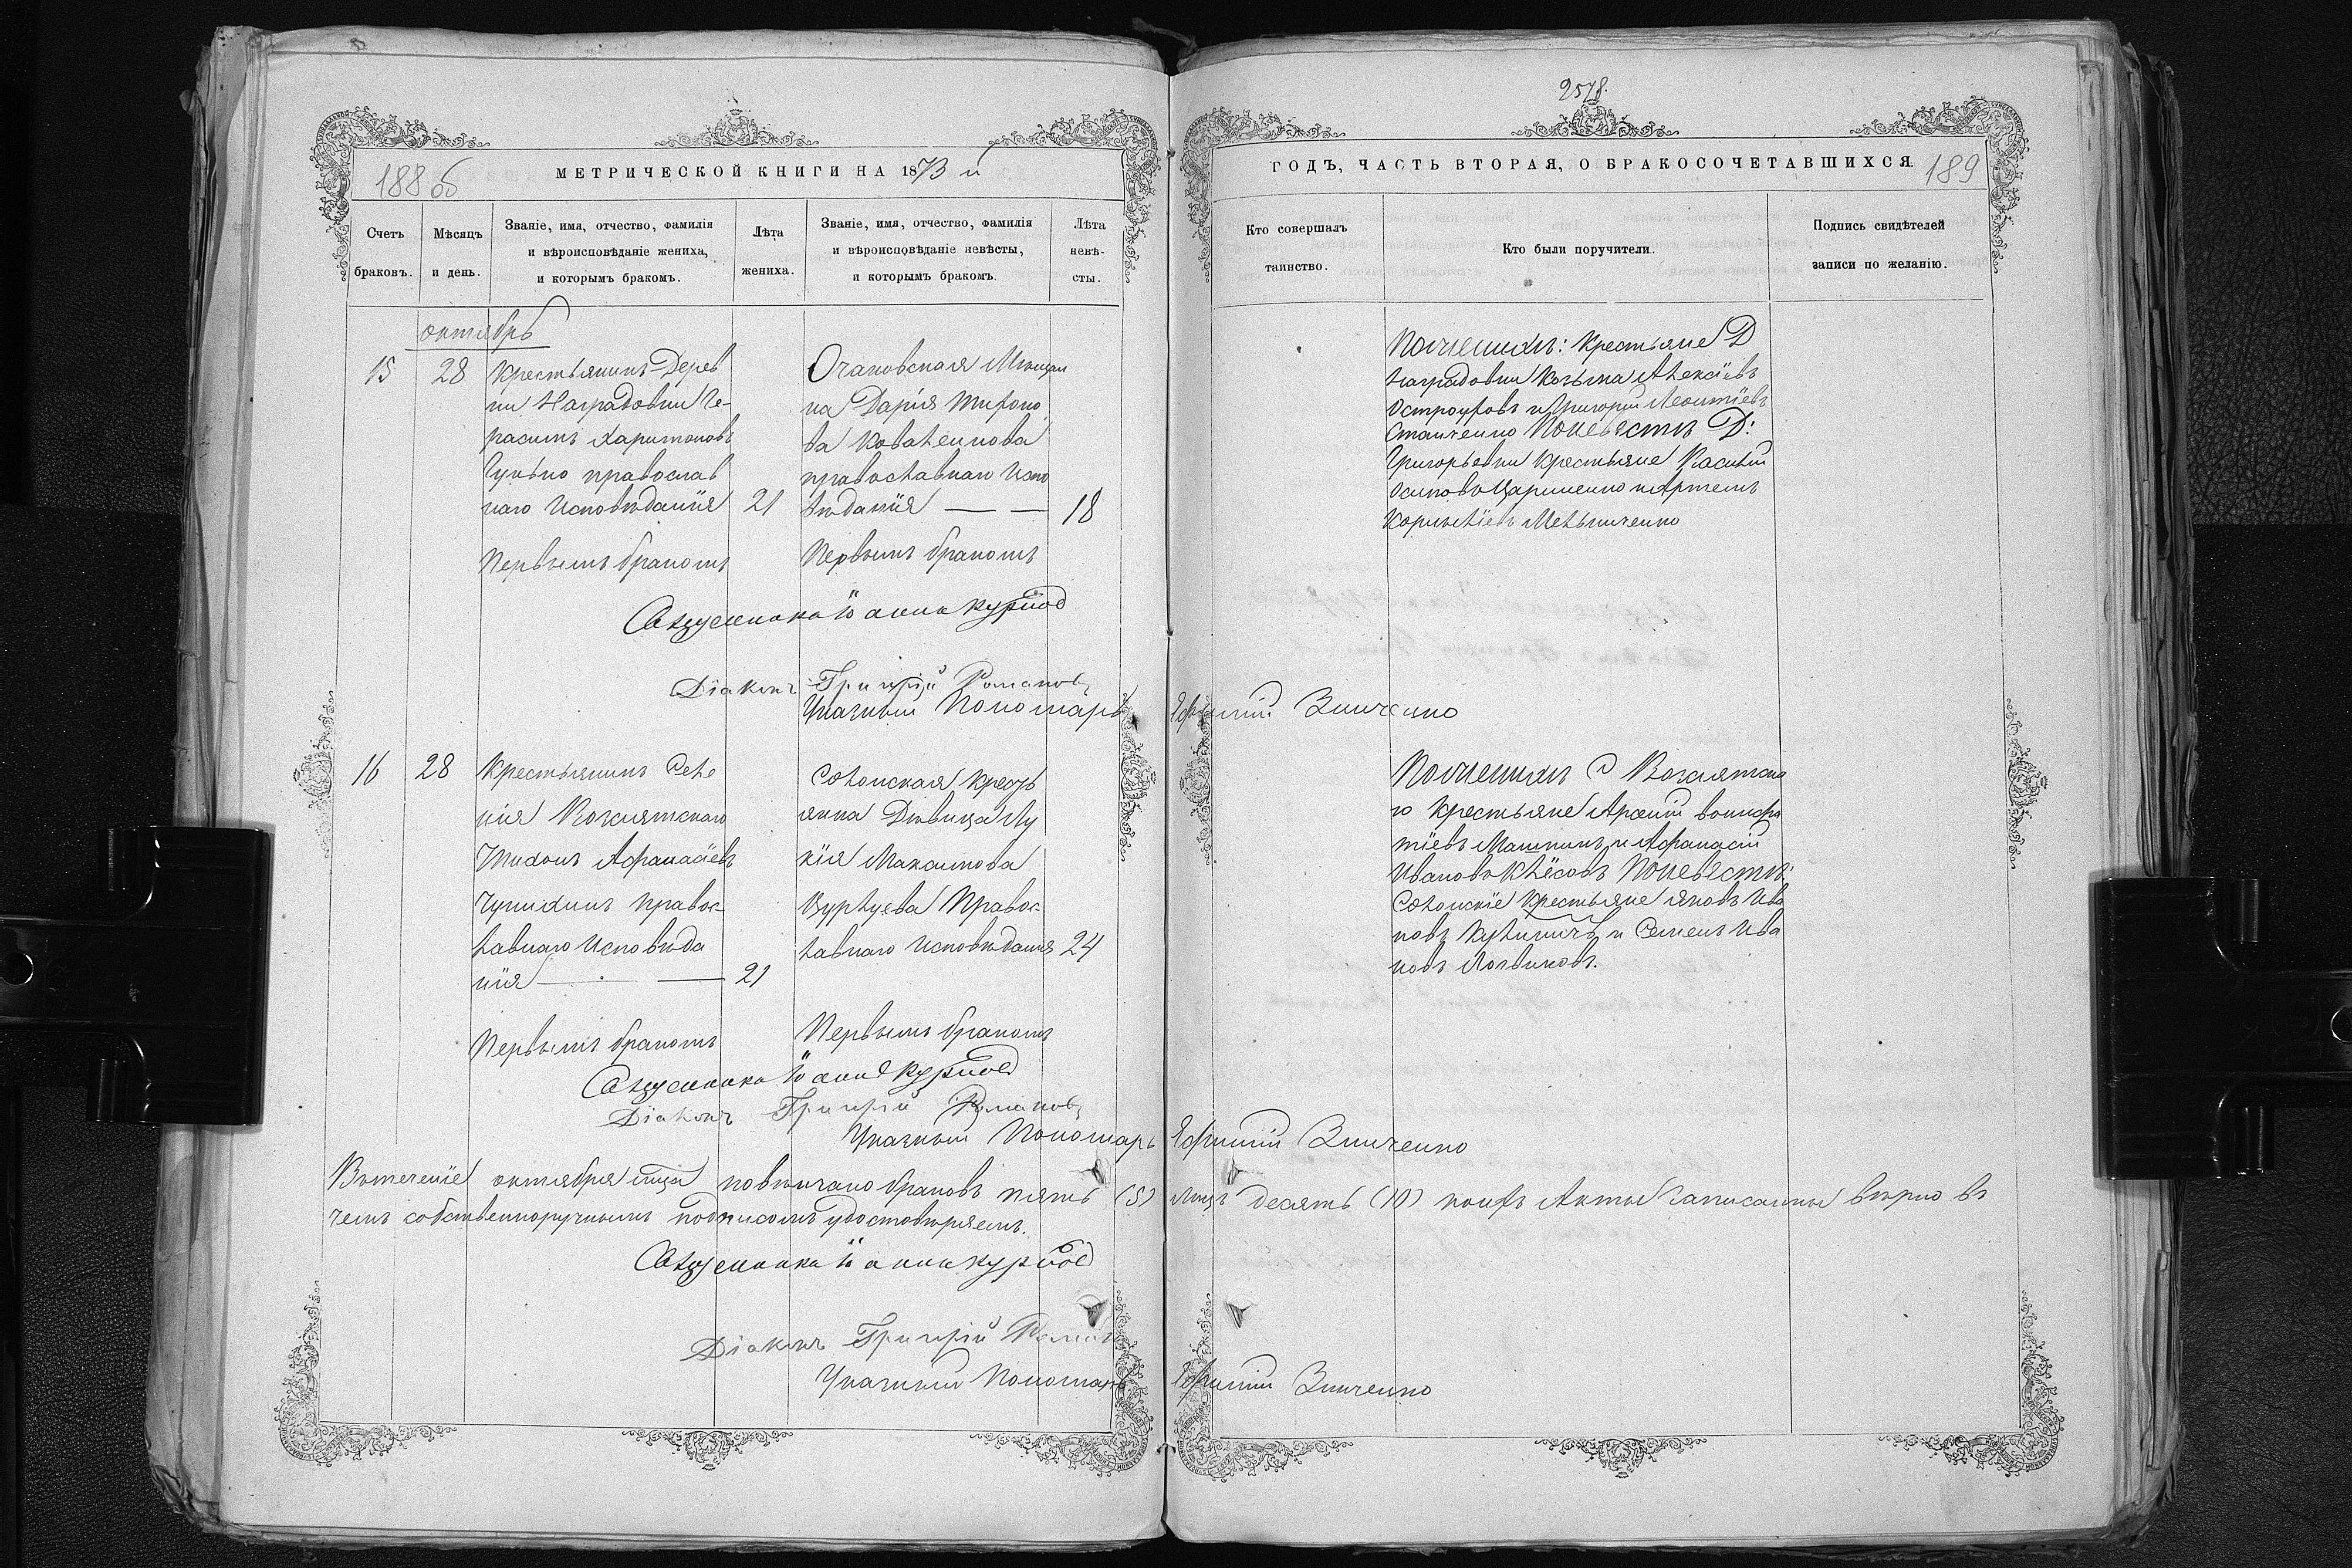 2578.
188 об
МЕТРИЧЕСКОЙ КНИГИ НА 1873 й
ГОДЪ, ЧАСТЬ ВТОРАЯ, О БРАКОСОЧЕТАВШИХСЯ.
189
Счетъ браковъ.
Мѣсяцъ и день.
Званіе, имя, отчество, фамилія
и вѣроисповѣданіе жениха,
и которымъ бракомъ.
Лѣта жениха.
Званіе, имя, отчество, фамилія
и вѣроисповѣданіе невѣсты,
и которымъ бракомъ.
Лѣта невѣ-
сты.
Кто совершалъ
таинство.
Кто были поручители.
Подпись свидѣтелей
записи по желанію.
октябрь
15
28
Крестьянинъ Дерев
ни Наградовки Ге-
расимъ Харитоновъ
Гунько православ
наго Исповѣданія
21
Первымъ бракомъ
Очаковская Мѣщан
ка Дарія
ва Коваленкова
православнаго Испо
вѣданія
18
Первымъ бракомъ
По женихѣ: Крестьяне Д
Наградовки Козьма Алексіевъ
Остроуховъ и Григорій Леонтіевъ
Станченко По невѣстѣ Д:
Григорьевки Крестьяне Василій
Осиповъ Царименко и Артемъ
Корнѣліевъ Мельниченко
Священникъ Іоаннъ
Діаконъ Григорій Романовъ
Указный Пономарь Ефимій Зинченко
16
28
Крестьянинъ Селе
нія Возсіятскаго
Тихонъ Афанасіевъ
Чунихинъ правос
лавнаго Исповѣда
нія
21
Первымъ бракомъ
Солонская Кресть
янка Дѣвица Лу
кія Максимова
Бурлуева Правос
лавнаго Исповѣданія
24
Первымъ бракомъ
По женихѣ С Возсіятска
го Крестьяне Арсеній Вонифа
тіевъ Машкинъ и Афанасій
Ивановъ Клёсовъ По невѣстѣ:
Солонскіе Крестьяне Яковъ Ива
новъ и Семенъ Ива
новъ Логвиновъ.
Священникъ Іоаннъ
Діаконъ Григорій Романовъ
Указный Пономарь Ефимій Зинченко
Втеченіе октября мца повѣнчано браковъ пять (5) лицъ десять (10) коихъ Акты записаны вѣрно въ
чемъ собственноручнымъ подписомъ удостовѣряемъ.
Священникъ Іоаннъ
Діаконъ Григорій
Указный Пономарь Ефимій Зинченко